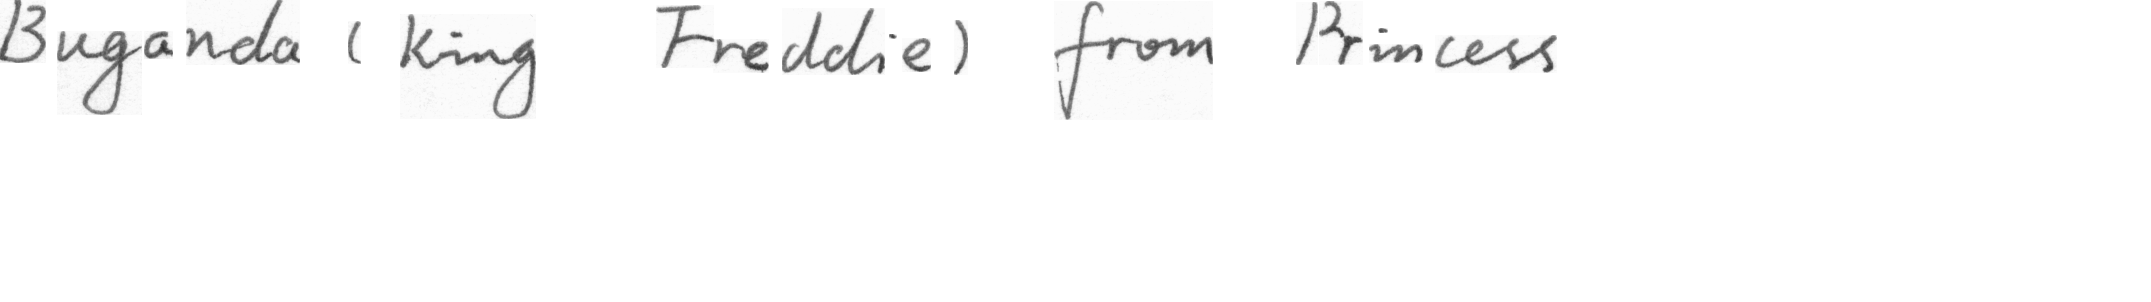 Buganda (King Freddie) from Princess